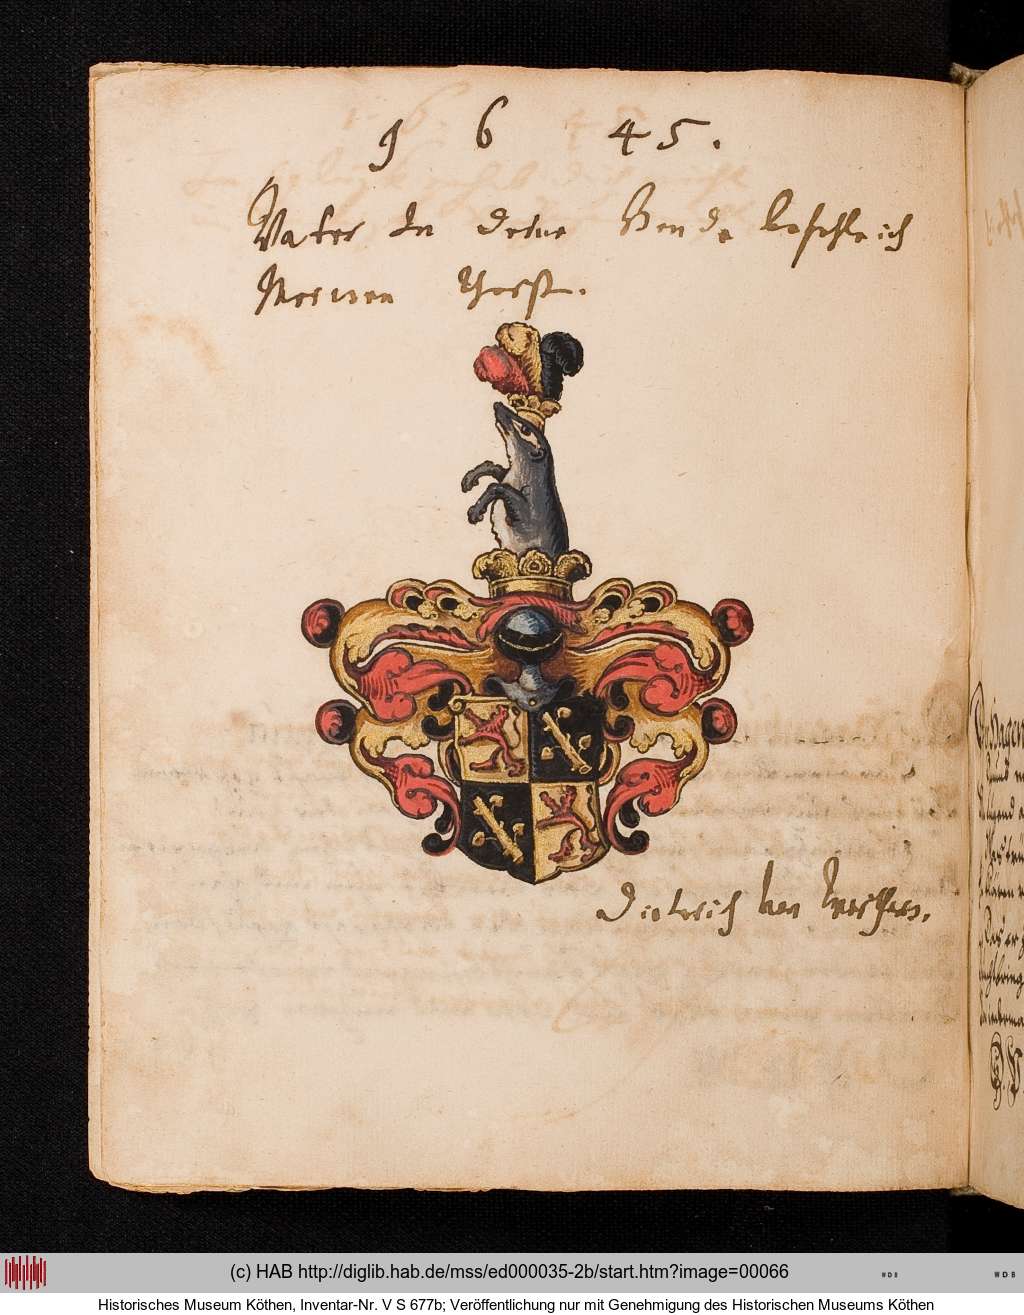 1 6 45.
Vater In deine Hende befehle ich
Meinen Geist.
Dietrich von Werthern.
(c) HAB http://diglib.hab.de/mss/ed000035-2b/start.htm?image=00066
WDB
WDB
Historisches Museum Köthen, Inventar-Nr. V S 677b; Veröffentlichung nur mit Genehmigung des Historischen Museums Köthen